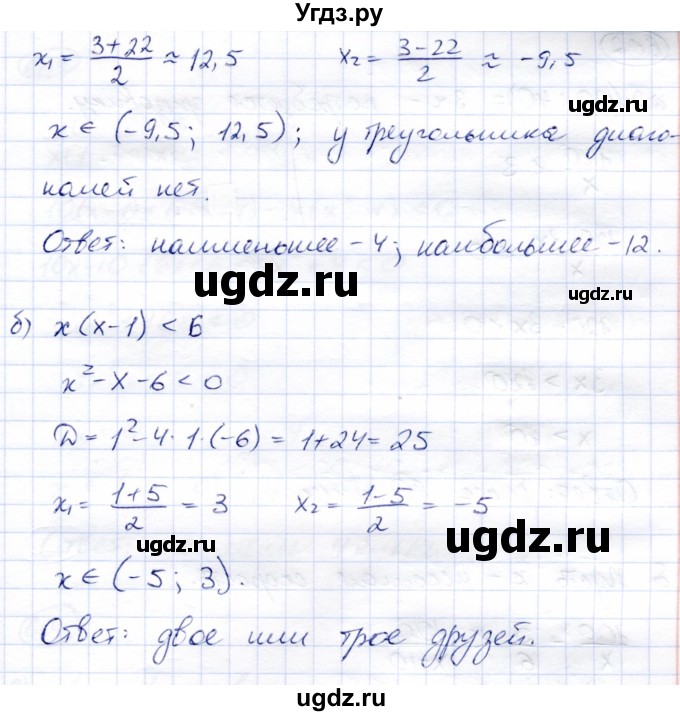 Угдз.ру
x₁ = (3+22)/2 ≈ 12,5    x₂ = (3-22)/2 ≈ -9,5
x ∈ (-9,5; 12,5); у треугольника диаго-
налей нет.
Ответ: наименьшее - 4; наибольшее - 12.
ugdz.ru
ugdz.ru
б) x(x-1) < 6
x² - x - 6 < 0
D = 1² - 4 · 1 · (-6) = 1 + 24 = 25
x₁ = (1+5)/2 = 3    x₂ = (1-5)/2 = -5
ugdz.ru
ugdz.ru
x ∈ (-5; 3).
Ответ: двое или трое друзей.
ugdz.ru
ugdz.ru